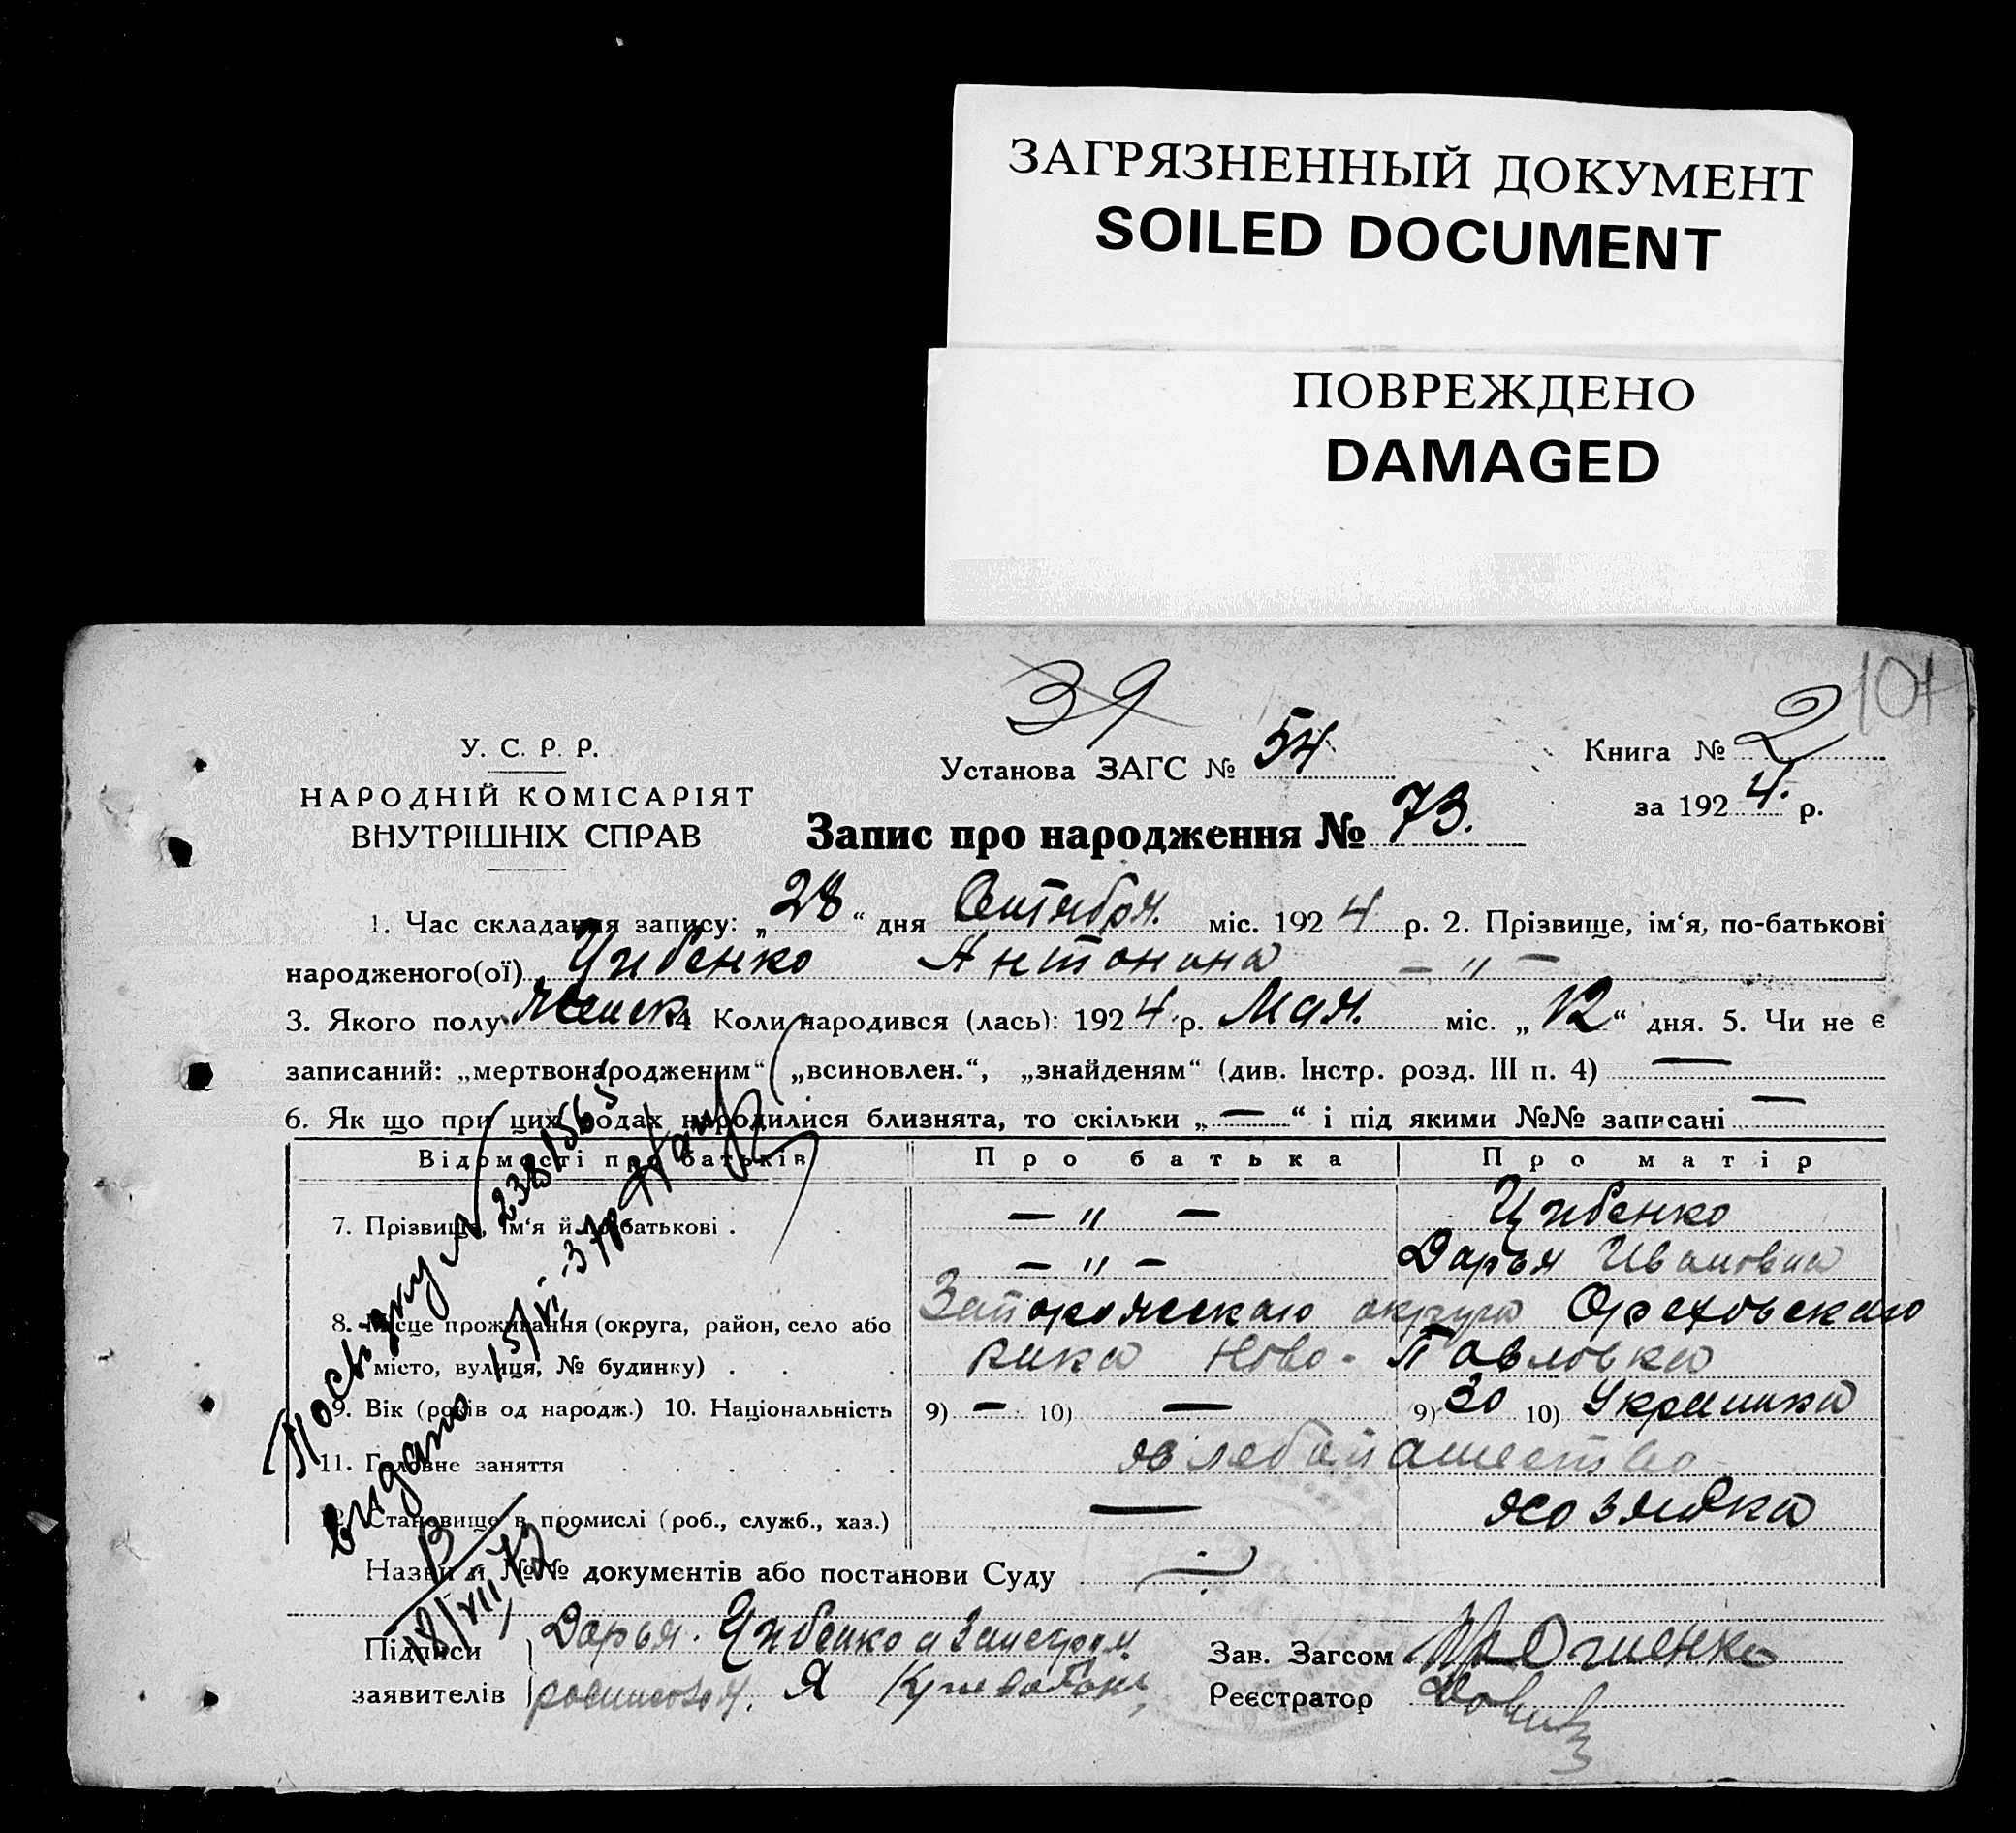 ЗАГРЯЗНЕННЫЙ ДОКУМЕНТ
SOILED DOCUMENT
ПОВРЕЖДЕНО
DAMAGED
39
101
У. С. Р. Р.
НАРОДНІЙ КОМІСАРІЯТ
ВНУТРІШНІХ СПРАВ
Установа ЗАГС № 54
Книга № 2
за 1924. р.
Запис про народження № 73.
1. Час складання запису: „28“ дня Октября. міс. 1924 р. 2. Прізвище, ім‘я, по-батькові
народженого(ої) Цибенко Антонина — „ —
3. Якого полу Женск. 4 Коли народився (лась): 1924 р. Мая. міс. „12“ дня. 5. Чи не є
записаний: „мертвонародженим“ „всиновлен.“, „знайденям“ (див. Інстр. розд. III п. 4) —
6. Як що при цих родах народилися близнята, то скільки „—“ і під якими №№ записані —
Відомості про батьків Про батька Про матір
7. Прізвище, ім‘я й по-батькові . — „ — Цибенко
— „ — Дарья Ивановна
8. Місце проживання (округа, район, село або Запорожскаго округа Ореховскаго
місто, вулиця, № будинку) . рика Ново-Павловка
9. Вік (років од народж.) 10. Національність 9) — 10) — 9) 30 10) Украинка
11. Головне заняття хлебопашество
12. Становище в промислі (роб., служб., хаз.) — хозяйка
Назви й №№ документів або постанови Суду
Підписи Дарья. Цибенко а
заявителів росписов. Я
Зав. Загсом
Реєстратор
видано 15/VI-37р
18/VII